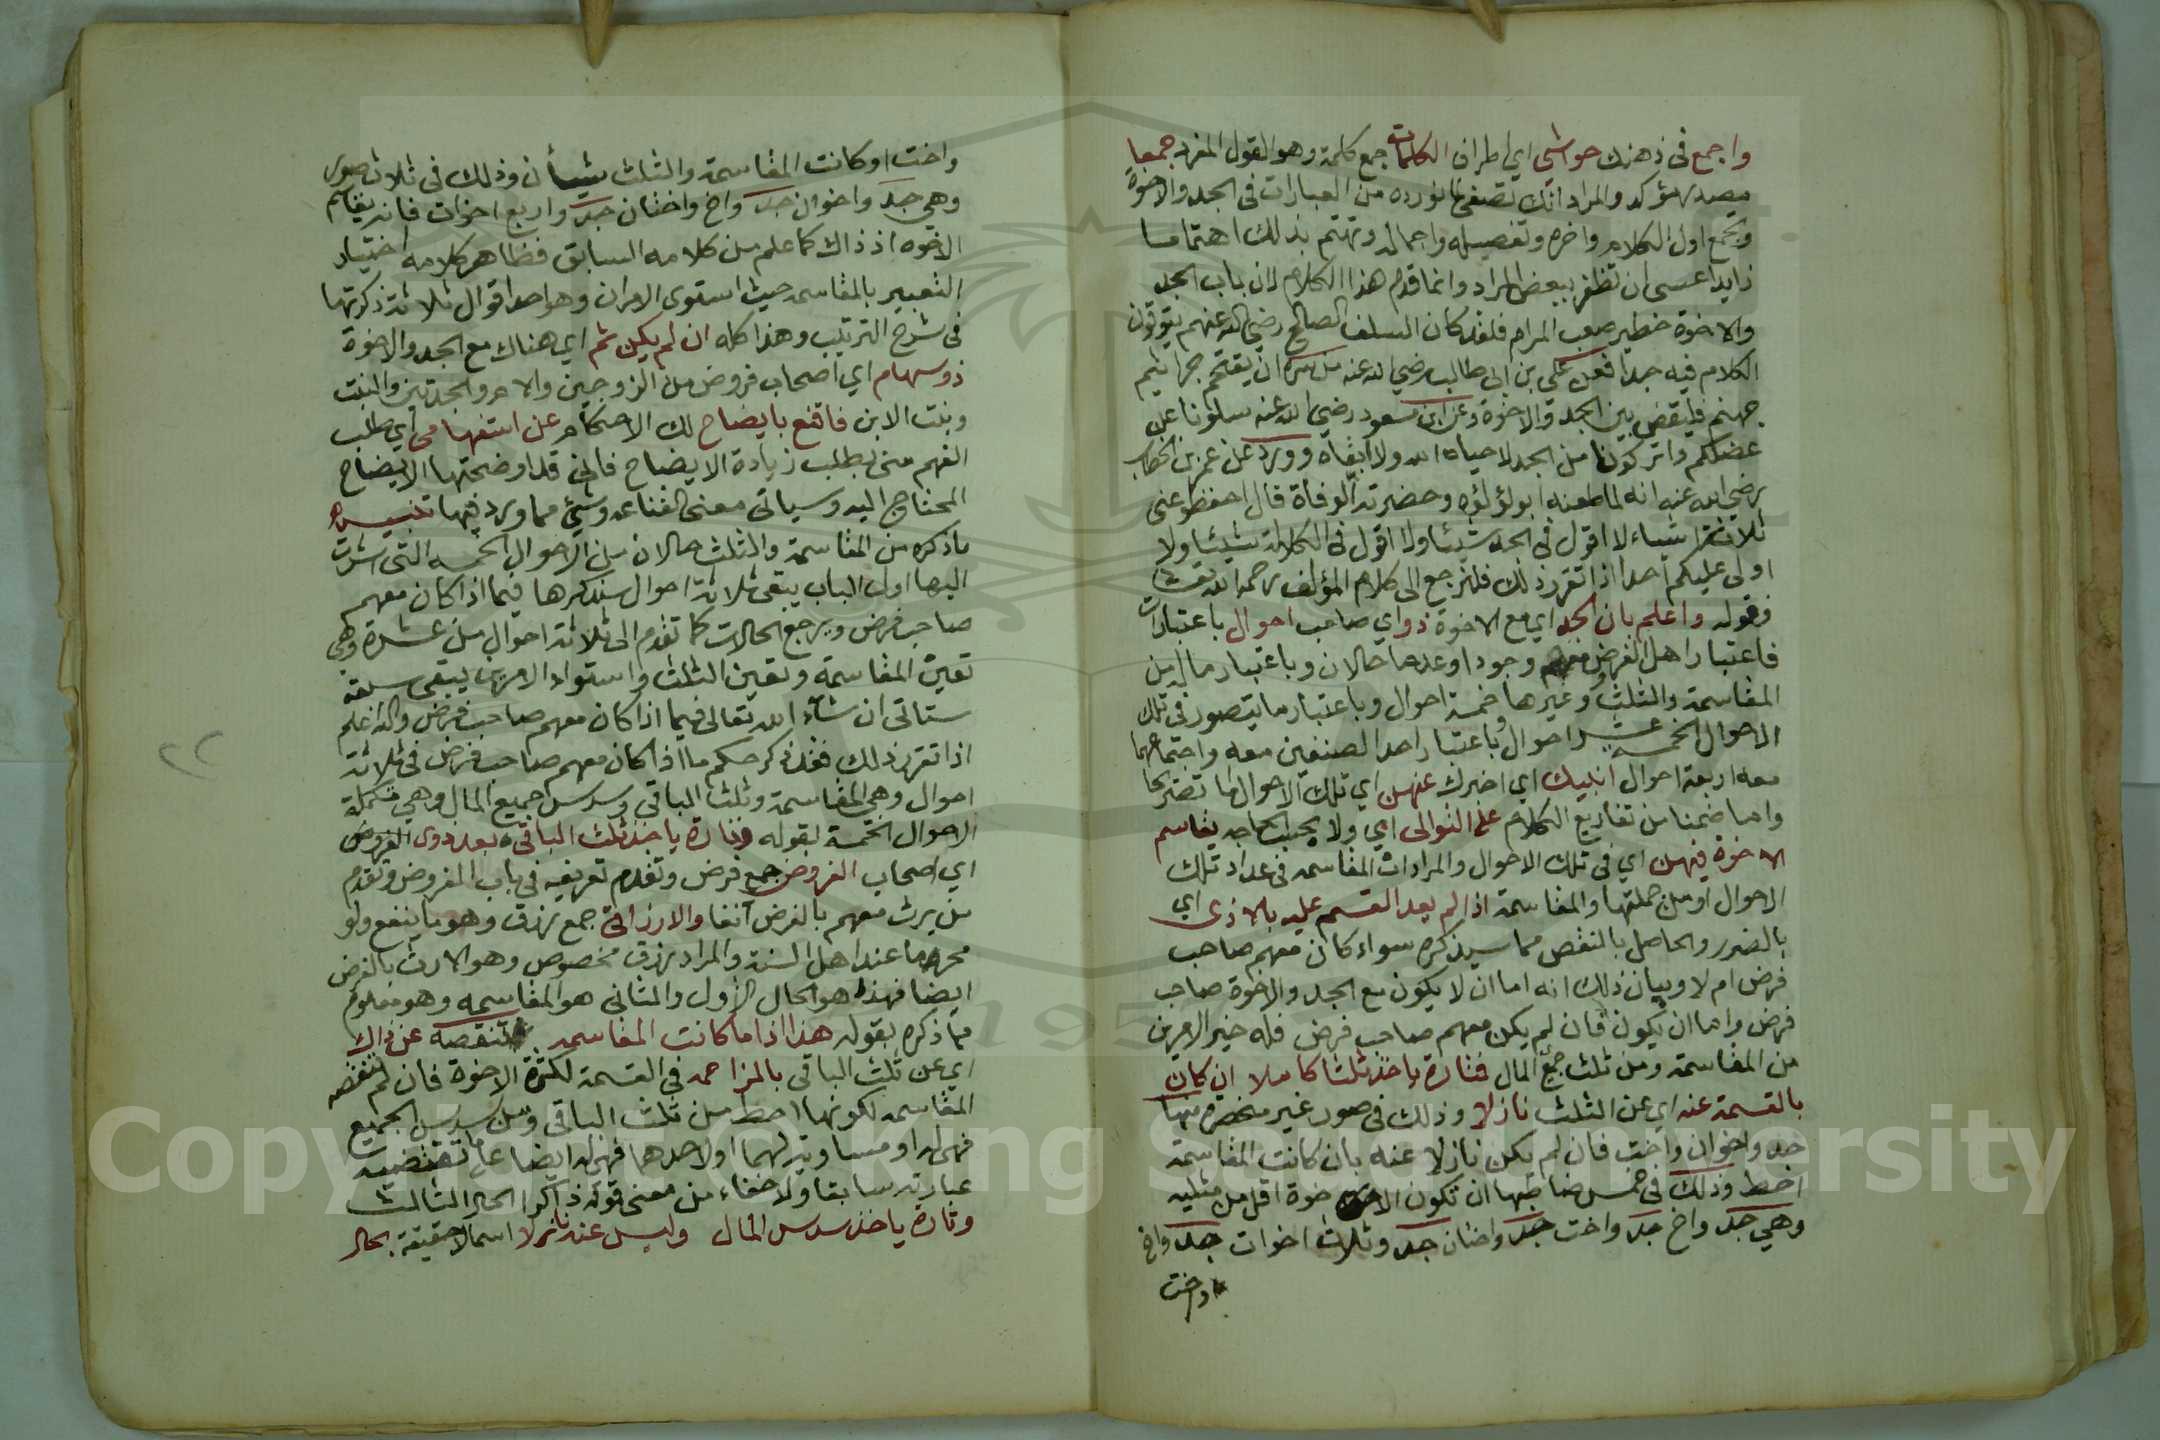 واجمع في ذهنك حواشي اي اطراف الكلمات جمع كلمة وهو القول المفرد جمعا
مصدر مؤكد والمراد انك تصغي لما نورده من العبارات في الجد والاخوة
وتجمع اول الكلام واخره وتفصيله واجماله وتهتم بذلك اهتماما
زايدا عسى ان تظفر ببعض المراد وانما قدم هذا الكلام لان باب الجد
والاخوة خطير صعب المرام فلقد كان السلف الصالح رضي الله عنهم يتوقون
الكلام فيه جدا فعن علي بن ابي طالب رضي الله عنه من سره ان يقتحم جراثيم
جهنم فليقض بين الجد والاخوة وعن ابن مسعود رضي الله عنه سلونا عن
عضلكم واتركونا من الجد لا حياه الله ولا ابقاه وورد عن عمر بن الخطاب
رضي الله عنه انه لما طعنه ابو لؤلؤه وحضرته الوفاة قال احفظو عني
ثلاثة اشياء لا اقول في الجد شيئا ولا اقول في الكلالة شيئا ولا
اولي عليكم احدا اذا تقرر ذلك فلنرجع الى كلام المؤلف رحمه الله
فقوله واعلم بان الجد اي مع الاخوة ذو اي صاحب احوال باعتبارات
فاعتبار اهل الفروض معهم وجودا وعدما حالان وباعتبار ماله من
المقاسمة والثلث وغيرها خمسة احوال وباعتبار ما يتصور في تلك
الاحوال الخمسة عشر احوال وباعتبار احد الصنفين معه واجتماعهما
معه اربعة احوال انبيك اي اخبرك عنهن اي تلك الاحوال
واما ضمنا من تفاريع الكلام على التوالي اي ولا يقاسم
الاخوة فيهن اي في تلك الاحوال والمراد ان المقاسمه في عداد تلك
الاحوال او من جملتها والمقاسمة اذا لم يعد القسم عليه بالاذى اي
بالضرر والحاصل بالنقص مما سيذكره سواء كان معهم صاحب
فرض ام لا وبيان ذلك انه اما ان لا يكون مع الجد والاخوة صاحب
فرض واما ان يكون فان لم يكن معهم صاحب فرض فله خير الامرين
من المقاسمة ومن ثلث جميع المال فتارة ياخذ ثلثا كاملا ان كان
بالقسمة عنه اي عن الثلث نازلا وذلك في صور غير منحصرة منها
جد واخوان واخت فان لم يكن نازلا عنه بان كانت المقاسمة
احظ وذلك في خمس ضابطها ان تكون الاخوة اقل من مثليه
وهي جد واخ جد واخت جد واختان جد وثلاث اخوات جد واخ
واخت
واخت او كانت المقاسمة والثلث سيأن وذلك في ثلاث صور
وهي جد واخوان جد واخ واختان جد واربع اخوات فانه يقاسم
الاخوه اذ ذاك كما علم من كلامه السابق فظاهر كلامه اختيار
التعبير بالمقاسمه حيث استوى الامران وهو احد اقوال ثلاثة ذكرتها
في شرح الترتيب وهذا كله ان لم يكن ثم اي هناك مع الجد والاخوة
ذو سهام اي اصحاب فروض من الزوجين والام والجدتين والبنت
وبنت الابن فاقنع بايضاح لك الاحكام عن استفهامي اي طلب
الفهم مني بطلب زيادة الايضاح فاني قد اوضحتها الايضاح
المحتاج اليه وسياتي معنى القناعه وشي مما ورد فيها تنبيه
ما ذكره من المقاسمة والثلث حالان من الاحوال الخمسه التي اشرت
اليها اول الباب يبقى ثلاثة احوال سنذكرها فيما اذا كان معهم
صاحب فرض ويرجع الحالات كما تقدم الى ثلاثة احوال من عشرة وهي
تعين المقاسمة وتعين الثلث واستواء الامرين يبقى سبعة
ستاتي ان شاء الله تعالى فيما اذا كان معهم صاحب فرض والله اعلم
اذا تقرر ذلك فخذ ذكر حكم ما اذا كان معهم صاحب فرض في ثلاثة
احوال وهي المقاسمة وثلث الباقي وسدس جميع المال وهي تكملة
الاحوال الخمسة بقوله وتارة ياخذ ثلث الباقي بعد ذوي الفروض
اي اصحاب الفروض جمع فرض وتقدم تعريفه في باب الفروض وتقدم
من يرث معهم بالفرض آنفا والارزاق جمع رزق وهو ما ينفع ولو
محرما عند اهل السنة والمراد رزق مخصوص وهو الارث بالفرض
ايضا فهذا هو الحال الاول والثاني هو المقاسمه وهو معلوم
مما ذكره بقوله هذا اذا ما كانت المقاسمه تنقصه عن ذاك
اي عن ثلث الباقي بالمزاحمه في القسمة لكثرة الاخوة فان لم تنقصه
المقاسمه لكونها احظ من ثلث الباقي ومن سدس الجميع
فهي له او مساوية لهما او لاحدهما فهي له ايضا على ما تقتضيه
عبارته سابقا ولا خفاء من معنى قوله ذاكرا الحال الثالث
وتارة ياخذ سدس المال وليس عنه نازلا اسما لا حقيقة بحال
٢٢
Copyright © King Saud University
1957